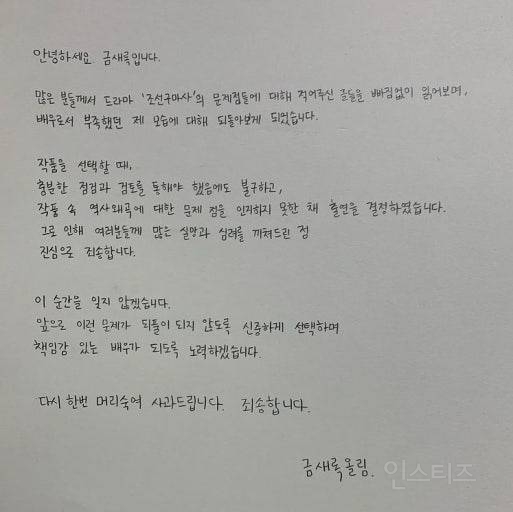 안녕하세요 금새록입니다.
많은 분들께서 드라마 '조선구마사'의 문제점들에 대해 적어주신 글들을 빠짐없이 읽어보며,
배우로서 부족했던 제 모습에 대해 되돌아보게 되었습니다.
작품을 선택할 때,
충분한 점검과 검토를 통해야 했음에도 불구하고,
작품 속 역사왜곡에 대한 문제 점을 인지하지 못한 채 출연을 결정하였습니다.
그로 인해 여러분들께 많은 실망과 심려를 끼쳐드린 점
진심으로 죄송합니다.
이 순간을 잊지 않겠습니다.
앞으로 이런 문제가 되풀이 되지 않도록 신중하게 선택하며
책임감 있는 배우가 되도록 노력하겠습니다.
다시 한번 머리숙여 사과드립니다. 죄송합니다.
금새록 올림.
인스티즈